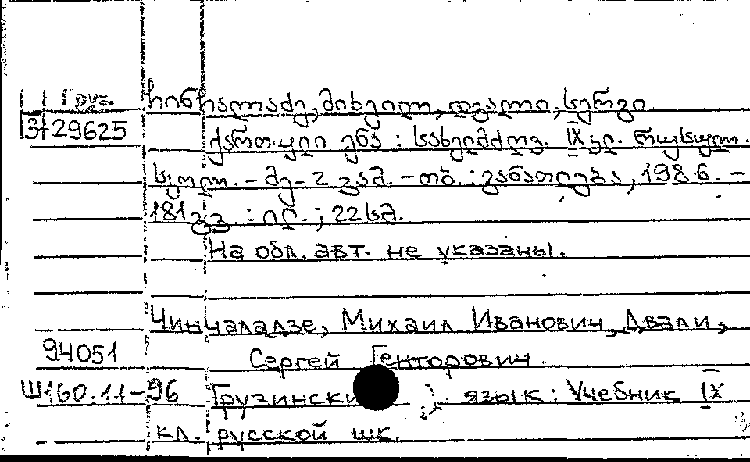 Груз. ჩინჩალაძე, მიხეილ, დვალი, სერგი
3-29625 ქართული ენა : სახელმძღვ. IX კლ. რუსული.
სკოლ. - მე-2 გამ. - თბ. : განათლება, 1986. -
181 გვ. : ილ. ; 22 სმ.
На обл. авт. не указаны.
Чинчаладзе, Михаил Иванович, Двали,
94051 Сергей Гекторович.
Ш160.11-96 Грузинский язык : Учебник IX
кл. русской шк.